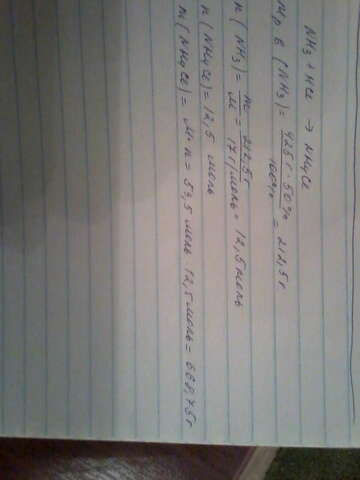 NH3 + HCl → NH4Cl
mр.в (NH3) = 425 г · 50% / 100% = 212,5 г
n (NH3) = m / M = 212,5 г / 17 г/моль = 12,5 моль
n (NH4Cl) = 12,5 моль
m (NH4Cl) = M · n = 53,5 моль · 12,5 моль = 668,75 г